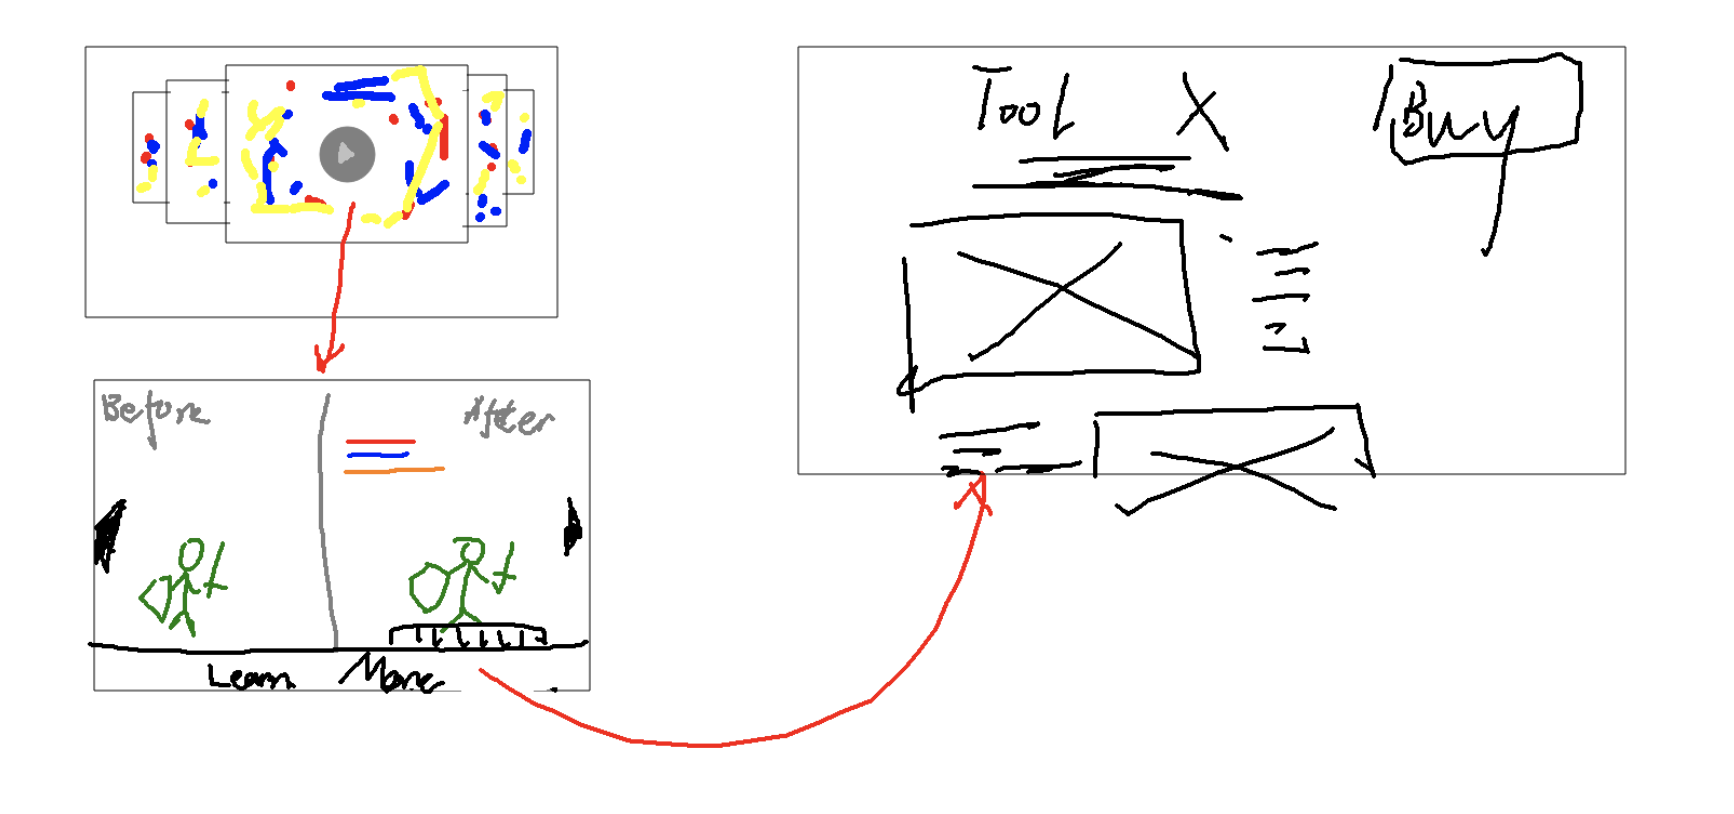 Before
After
Learn More
Tool X
Buy